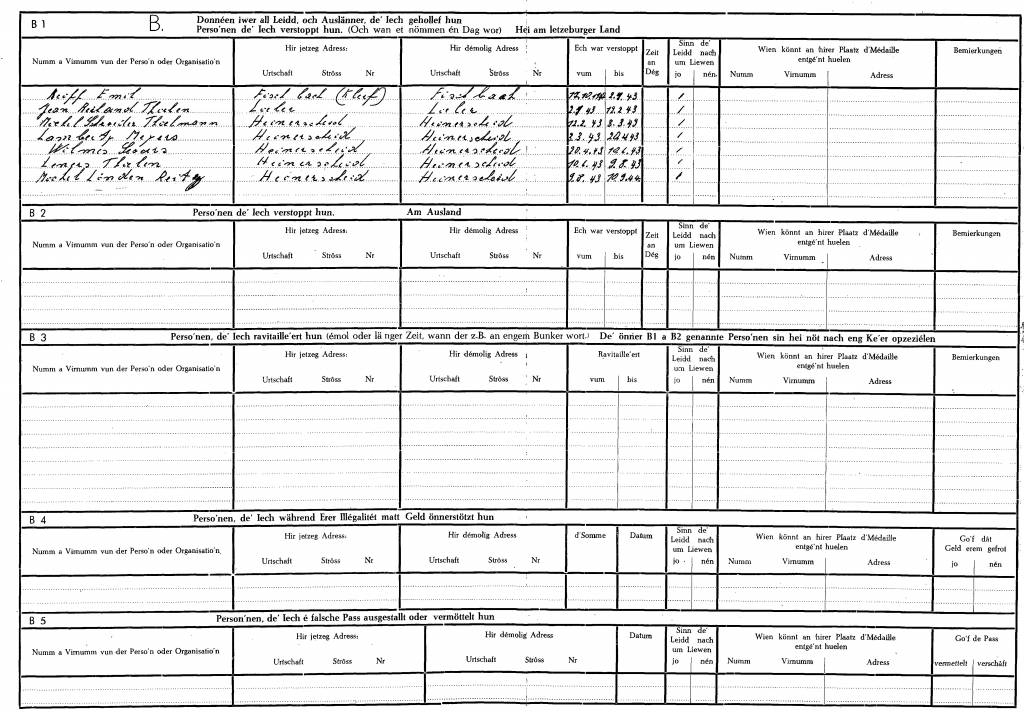 B 1 B. Donnéen iwer all Leidd, och Auslänner, de' Iech gehollef hun
Perso'nen de' Iech verstoppt hun. (Och wan et nömmen én Dag wor) Hei am letzeburger Land
Numm a Virnumm vun der Perso'n oder Organisatio'n
Hir jetzeg Adress:
Urtschaft Ströss Nr
Hir démolig Adress
Urtschaft Ströss Nr
Ech war verstoppt
vum bis
Zeit an Dég
Sinn de' Leidd nach um Liewen
jo nén
Wien könnt an hirer Plaatz d'Médaille entgé'nt huelen
Numm Virnumm Adress
Bemierkungen
Emil Fischbach (Klerf) Fischbach 2.9.43 /
Jean Thielen Lieler Lieler 2.9.43 12.2.43 /
Michel Thielmann Heinerscheid Heinerscheid 12.2.43 3.3.43 /
Lamberty Meyers Heinerscheid Heinerscheid 3.3.43 20.4.43 /
Wilmes Heinerscheid Heinerscheid 20.4.43 10.6.43 /
Thielen Heinerscheid Heinerscheid 10.6.43 9.8.43 /
Michel Linden Heinerscheid Heinerscheid 9.8.43 10.9.44 /
B 2 Perso'nen de' Iech verstoppt hun. Am Ausland
Numm a Virnumm vun der Perso'n oder Organisatio'n
Hir jetzeg Adress:
Urtschaft Ströss Nr
Hir démolig Adress
Urtschaft Ströss Nr
Ech war verstoppt
vum bis
Zeit an Dég
Sinn de' Leidd nach um Liewen
jo nén
Wien könnt an hirer Plaatz d'Médaille entgé'nt huelen
Numm Virnumm Adress
Bemierkungen
B 3 Perso'nen, de' Iech ravitaille'ert hun (émol oder länger Zeit, wann der z.B. an engem Bunker wort.) De' önner B1 a B2 genannte Perso'nen sin hei nöt nach eng Ke'er opzeziélen
Numm a Virnumm vun der Perso'n oder Organisatio'n
Hir jetzeg Adress:
Urtschaft Ströss Nr
Hir démolig Adress
Urtschaft Ströss Nr
Ravitaille'ert
vum bis
Sinn de' Leidd nach um Liewen
jo nén
Wien könnt an hirer Plaatz d'Médaille entgé'nt huelen
Numm Virnumm Adress
Bemierkungen
B 4 Perso'nen, de' Iech während Erer Illégalitét matt Geld önnerstötzt hun
Numm a Virnumm vun der Perso'n oder Organisatio'n
Hir jetzeg Adress:
Urtschaft Ströss Nr
Hir démolig Adress
Urtschaft Ströss Nr
d'Somme
Datum
Sinn de' Leidd nach um Liewen
jo nén
Wien könnt an hirer Plaatz d'Médaille entgé'nt huelen
Numm Virnumm Adress
Go'f dát Geld erem gefrot
jo nén
B 5 Person'nen, de' Iech é falsche Pass ausgestallt oder vermöttelt hun
Numm a Virnumm vun der Perso'n oder Organisatio'n
Hir jetzeg Adress:
Urtschaft Ströss Nr
Hir démolig Adress
Urtschaft Ströss Nr
Datum
Sinn de' Leidd nach um Liewen
jo nén
Wien könnt an hirer Plaatz d'Médaille entgé'nt huelen
Numm Virnumm Adress
Go'f de Pass
vermettelt verschâft